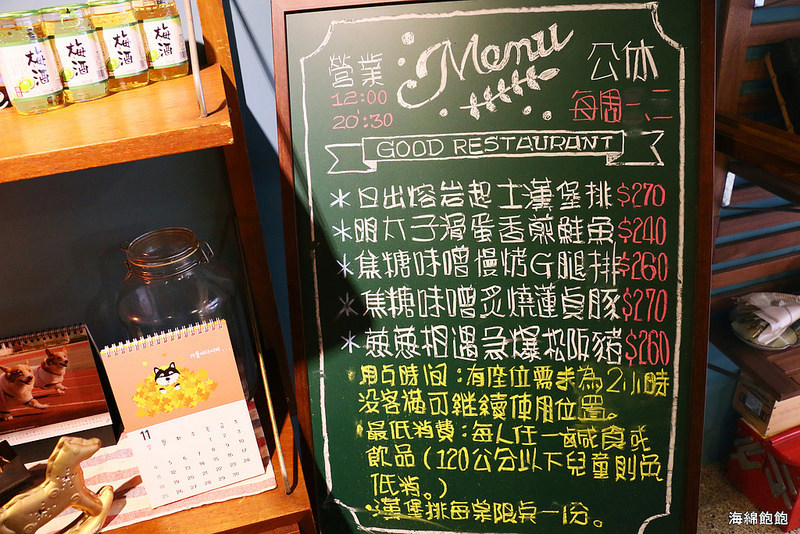 梅酒
梅酒
梅酒
梅酒
營業
12:00
20:30
Menu
公休
每周一、二
GOOD RESTAURANT
*日出熔岩起士漢堡排$270
*明太子滑蛋香煎鮭魚$240
*焦糖味噌慢烤G腿排$260
*焦糖味噌炙燒蓮貞豚$270
*蔥蔥相遇急爆松阪豬$260
·用歺時間:有座位需求為2小時
没客滿可繼續使用位置。
·最低消費:每人任一鹹食或
飲品(120公分以下兒童則免
低消。)
·漢堡排每桌限點一份。
11
海綿飽飽